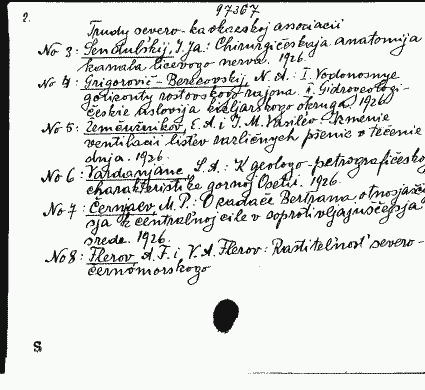 97367
2.
Trudy severo-kavkazskoj associacii
No 3: Šendubskij, I. Ja: Chirurgičeskaja anatomija
kanala licevogo nerva. 1926.
No 4: Grigorovič-Berezovskij, N. A.: I. Vodonosnye
gorizonty rostovskogo rajona. II. Gidrogeologi-
českie uslovija kizljarskogo okruga. 1926.
No 5: Zemčužnikov, E. A. i I. M. Vasil'ev:
ventilacii list'ev različnych pšenic v tečenie
dnja. 1926.
No 6: Vardanjanc, L. A.: K geologo-petrografičeskoj
charakteristike gornoj Osetii. 1926.
No 7: Černjaev M. P.: O zadače Bertrana, otnosjašče
sja k central'noj sile v soprotivljajuščejsja
srede. 1926.
No 8: Flerov A. F. i V. A. Flerov: Rastitel'nost' severo-
černomorskogo
S